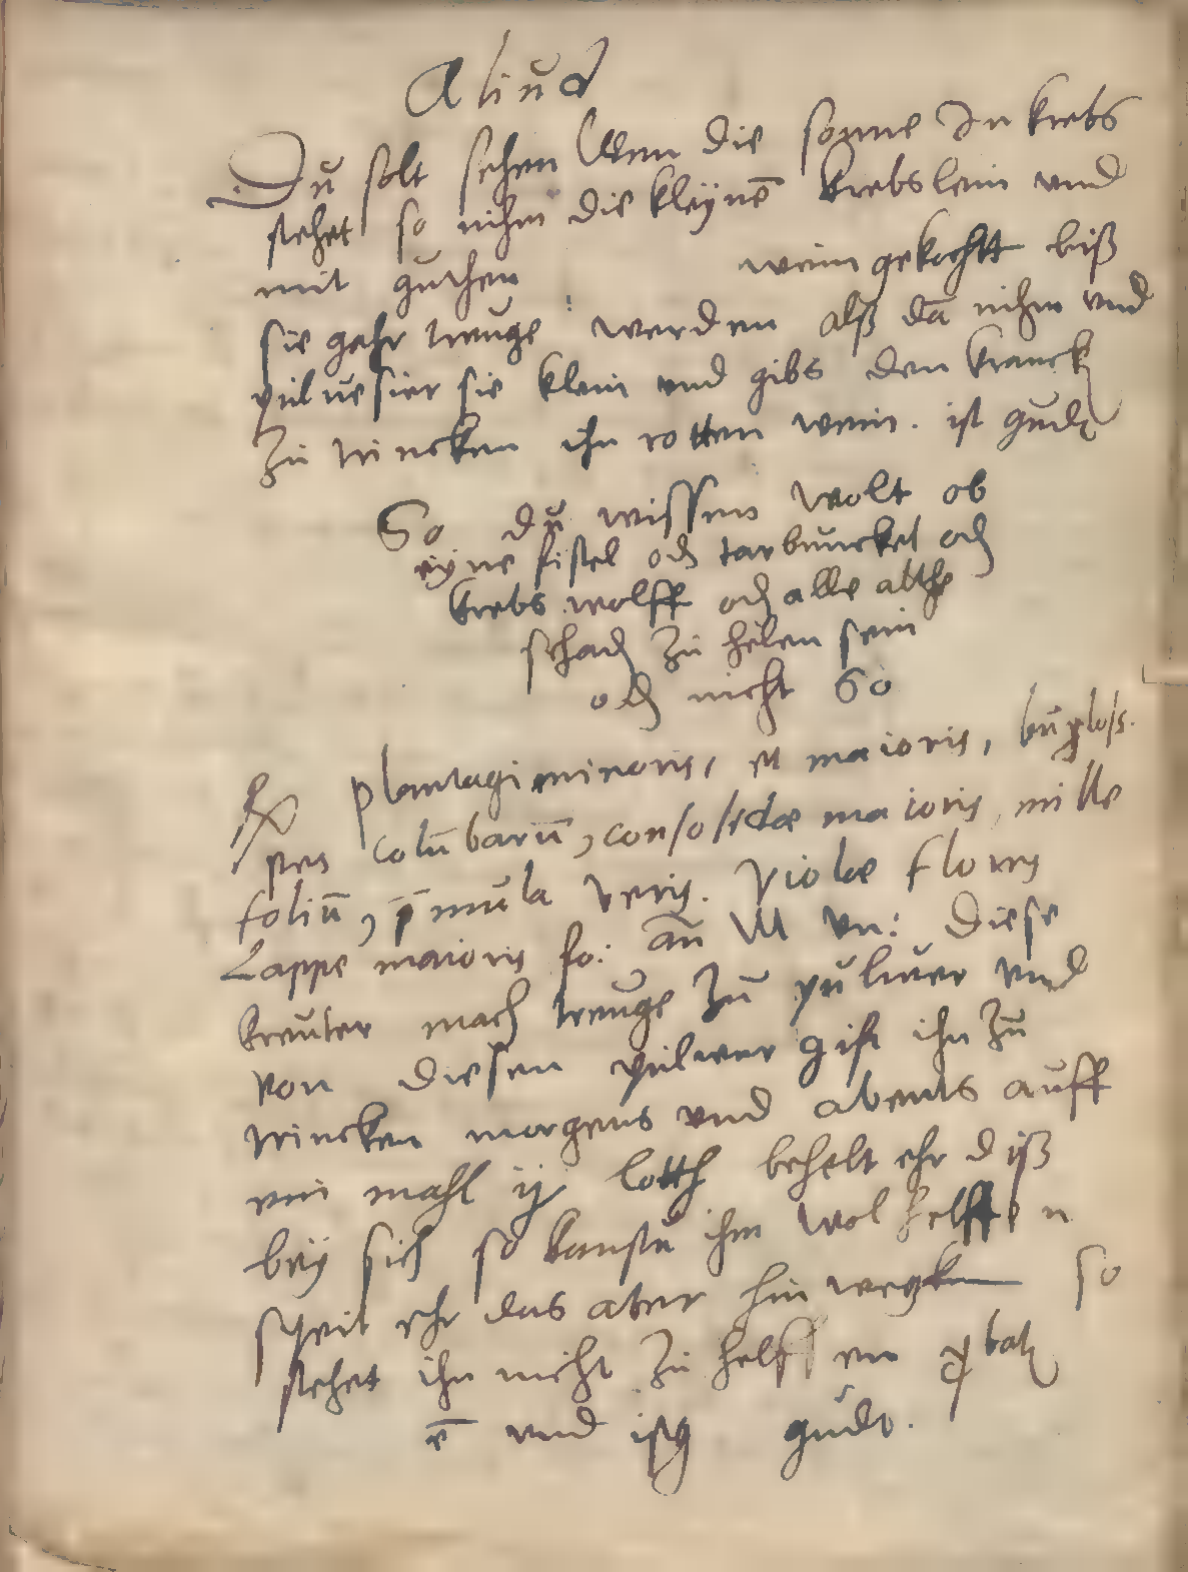 Aliud
Du solt sehen Wen die sonne In krebs
stehet so nihm die kleÿnē krebslein vnd
mit guthen wein gekochtt biß
sie gahr treuge werden alß dā nihm vnd
puluesier sie klein vnd gibs den kranck
zu trincken ihn rotten wein. ist gudt
So du wissen wolt ob
eÿne fistel od tarbunckel od
krebs wolff od alle althe
schad zu helen sein
od nicht So
℞ plantagi minoris, et maioris, bugloss.
pes colūbarū, consolidæ maioris, mille
foliū, p̄mula veris. Violæ flores
Lappe maioris fo: an M vn: Diese
kreuter mach treuge zu puluer vnd
von diesen pulwer gift ihn zu
trincken morgens vnd abents auff
ein mahl ij lotth behelt ehr diß
beÿ sich so kanstu ihm wol helffen
speit ehr das aber hin wegk so
stehet ihn nicht zu helffen pbat
ē vnd ist gudt.